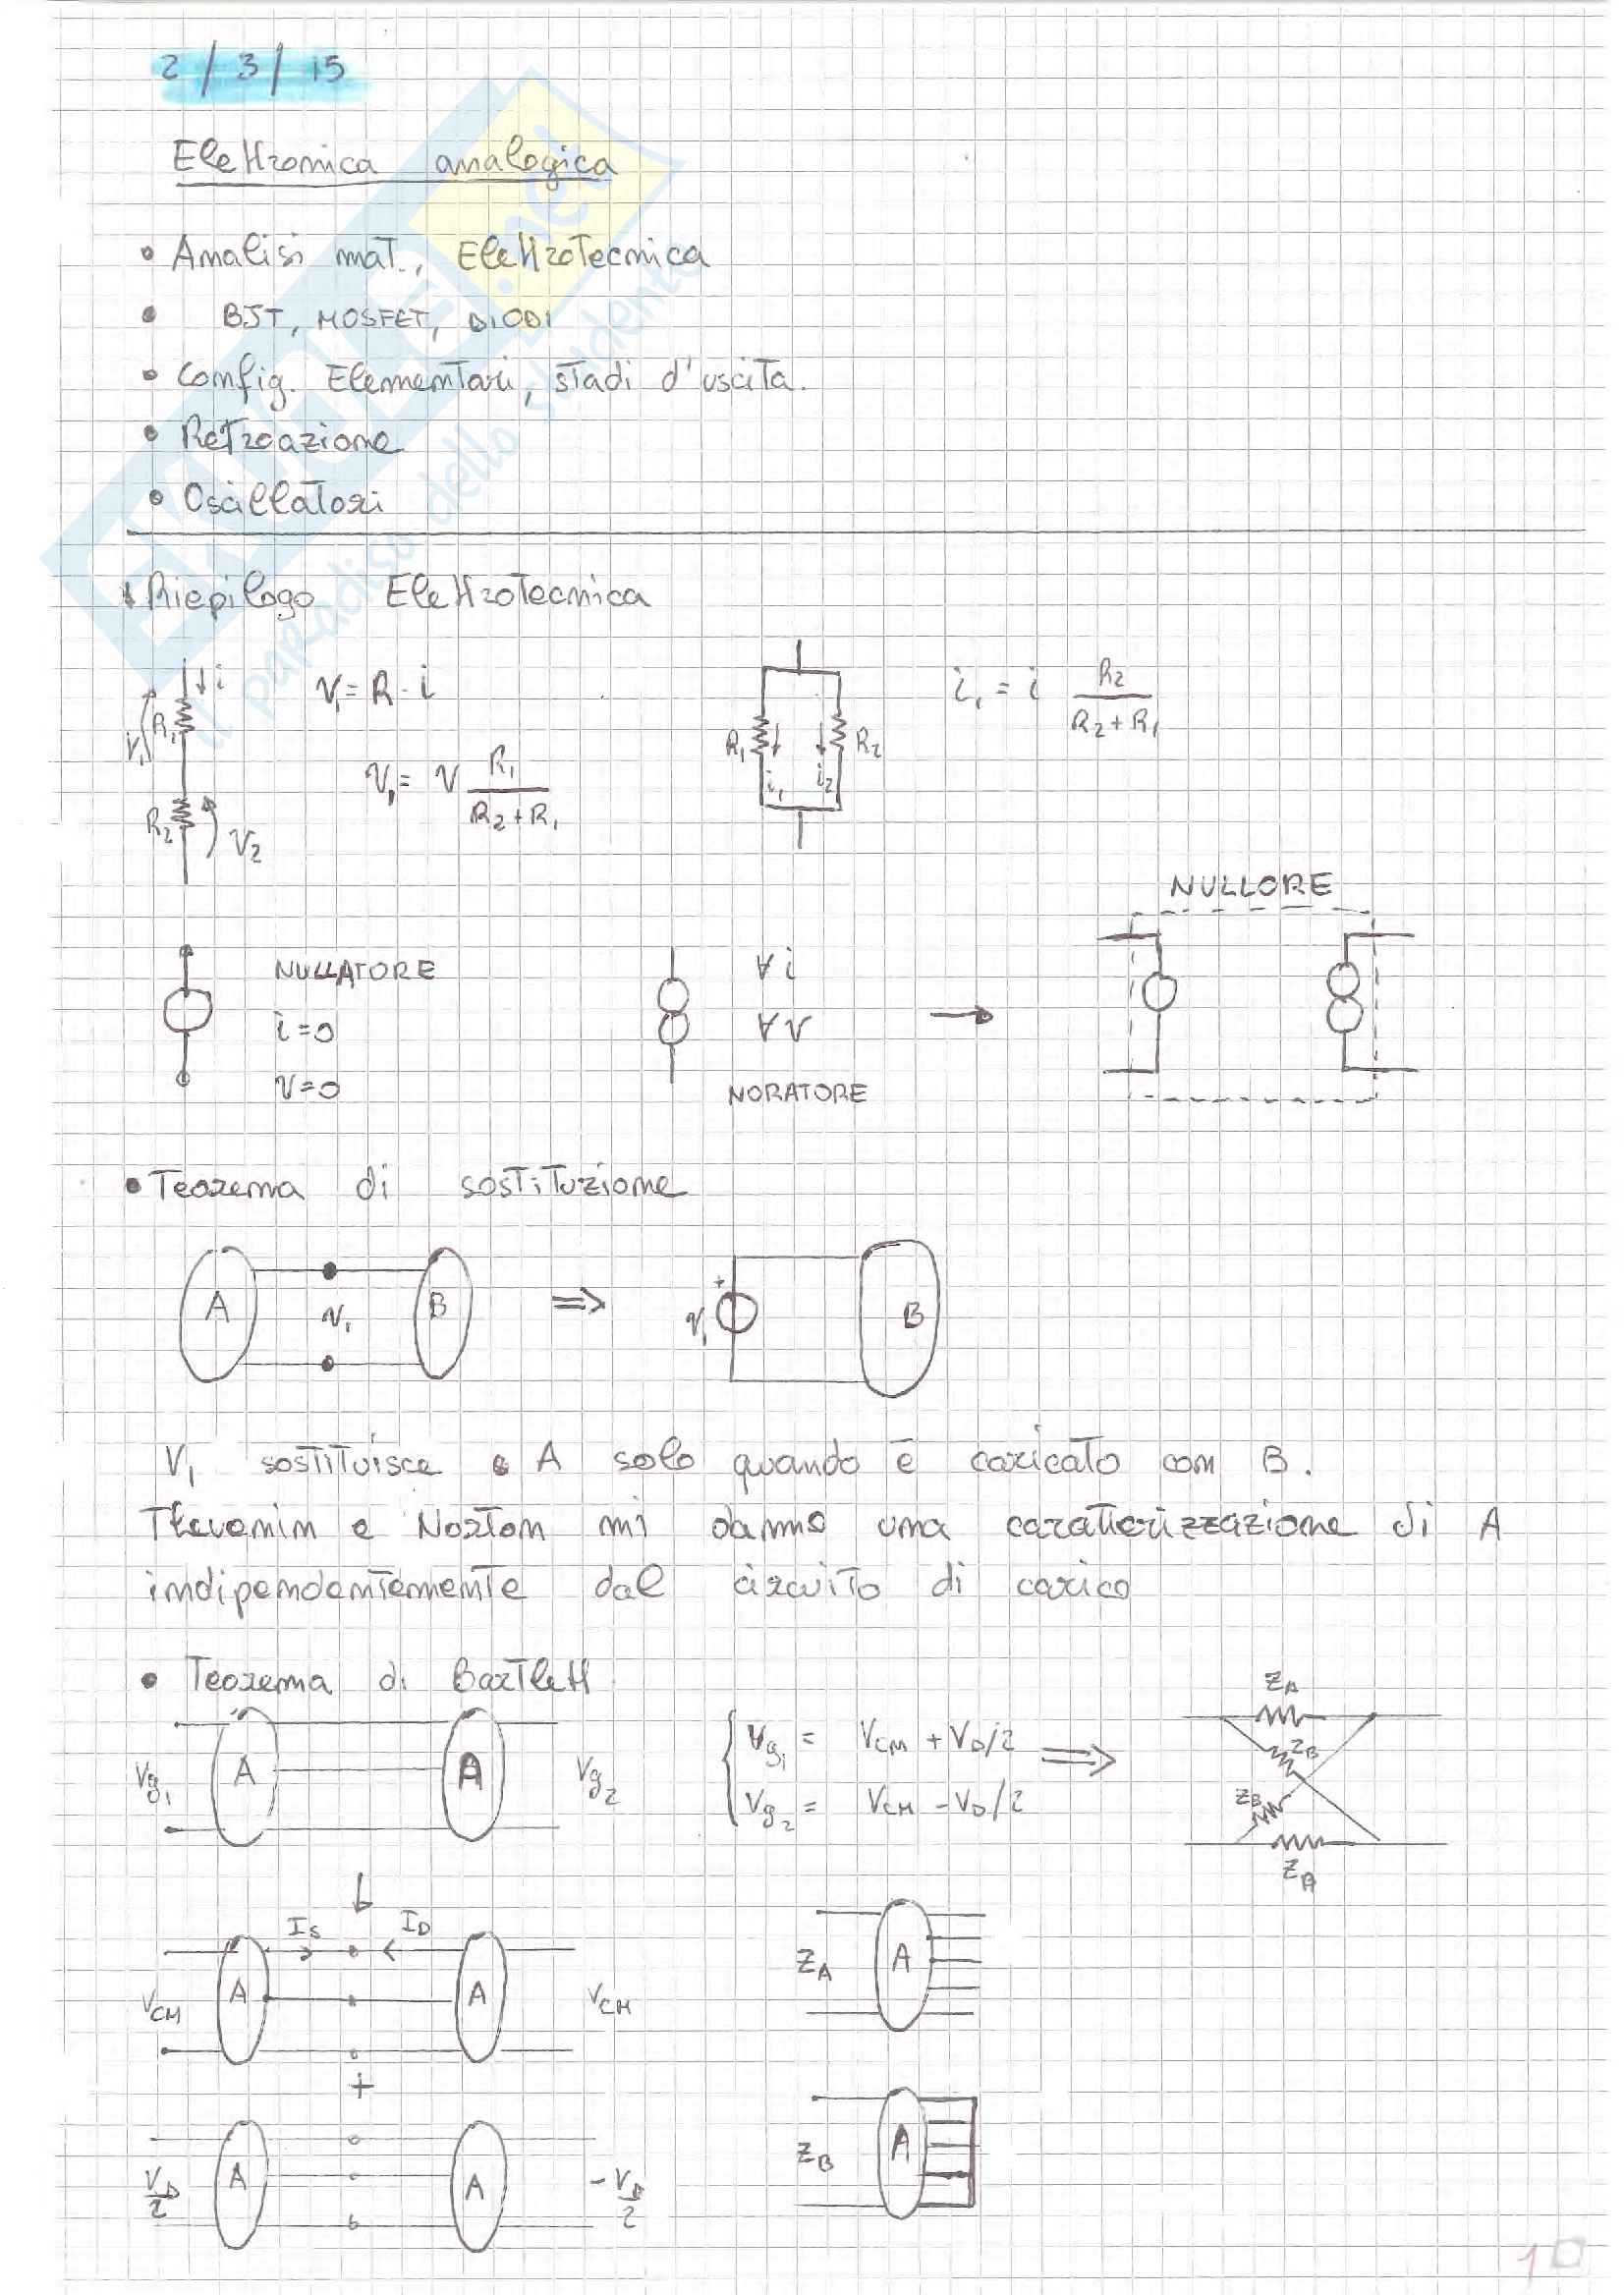 2/3/15
Elettronica analogica
• Analisi mat., Elettrotecnica
• BJT, MOSFET, DIODI
• Config. Elementari, stadi d'uscita.
• Retroazione
• Oscillatori
Riepilogo Elettrotecnica
i
V₁ = R · i
R₁
V₁
V₁ = V R₁ / (R₂ + R₁)
R₂
V₂
R₁
R₂
i₁
i₂
i₁ = i R₂ / (R₂ + R₁)
NULLORE
NULLATORE
i=0
V=0
∀i
∀V
NORATORE
• Teorema di sostituzione
A
V₁
B
⇒
+
V₁
B
V₁ sostituisce A solo quando è caricato con B.
Thevenin e Norton mi danno una caratterizzazione di A
indipendentemente dal circuito di carico
• Teorema di Bartlett
Vg₁
A
A
Vg₂
Vg₁ = VCM + VD/2
Vg₂ = VCM - VD/2
⇒
ZA
ZB
ZB
ZA
IS
ID
VCM
A
A
VCM
+
VD/2
A
A
-VD/2
ZA
A
ZB
A
1
il paradiso dello studente